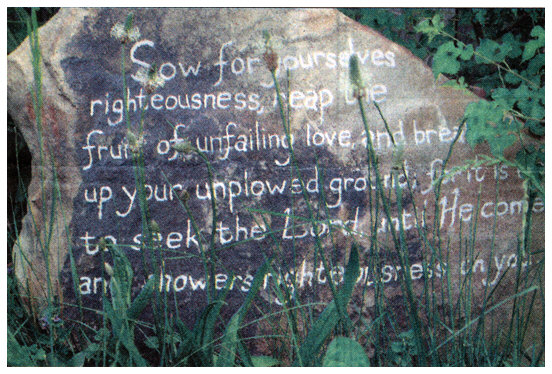 Sow for yourselves
righteousness, reap the
fruit of unfailing love, and break
up your unplowed ground; for it is
to seek the Lord, until He comes
and showers righteousness on you.